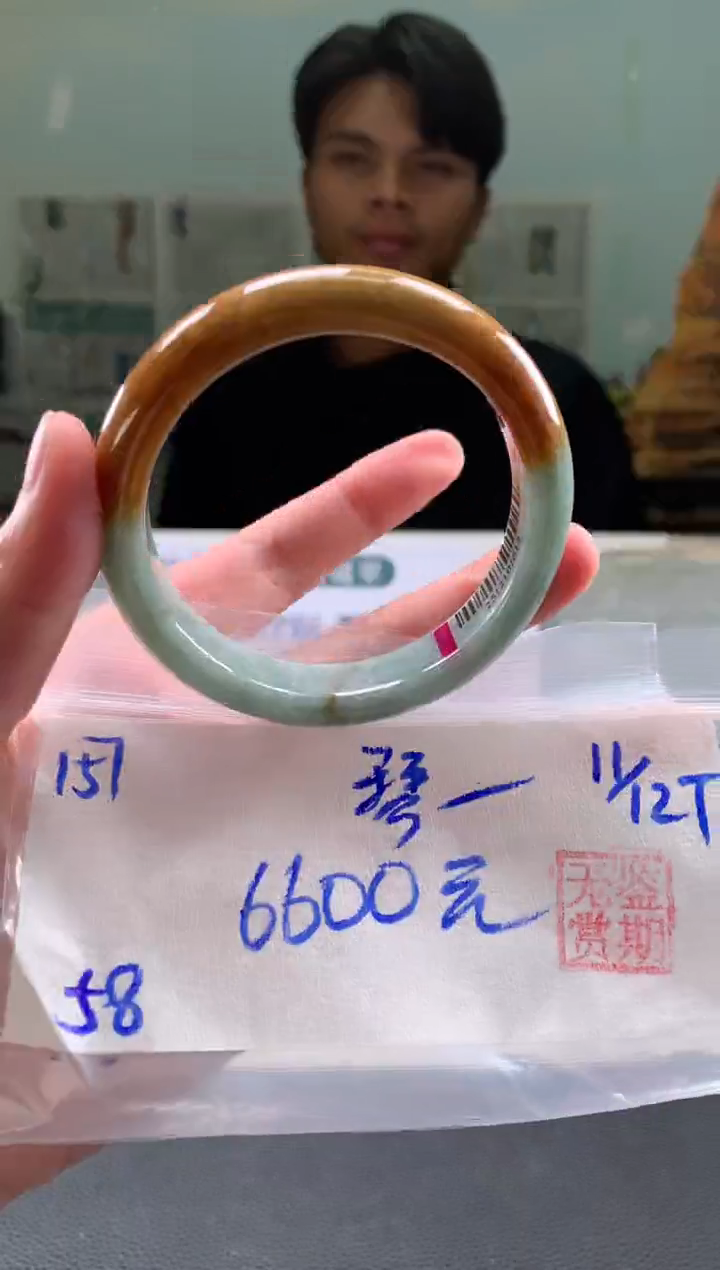 157 琴一 11/12T
6600元
无鉴
赏期
58